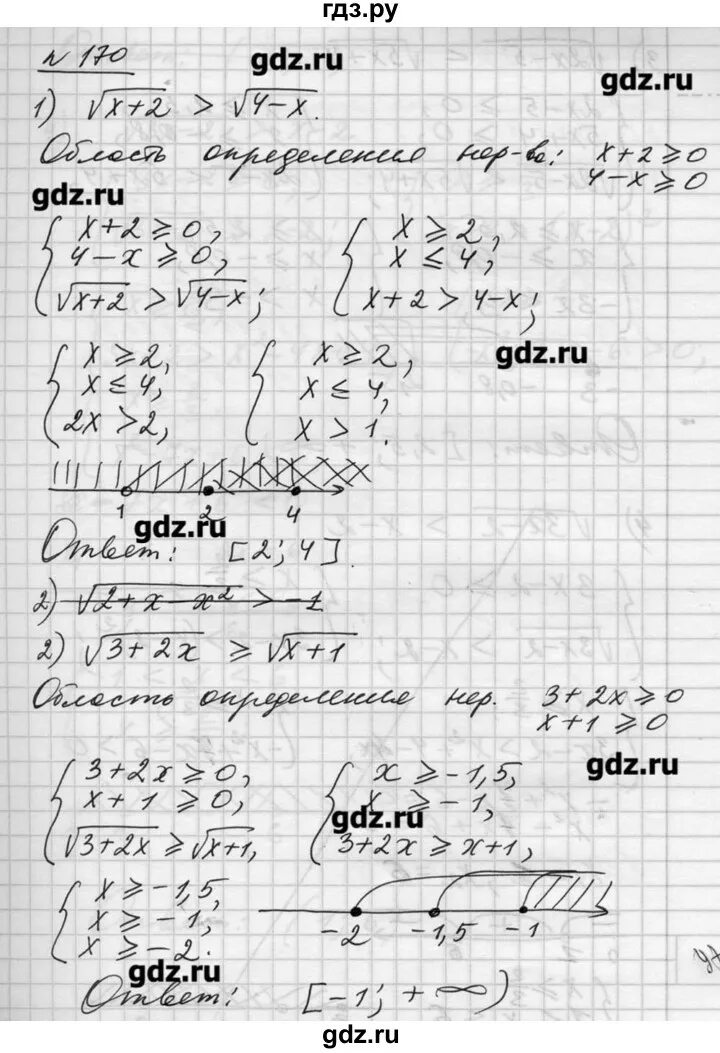 гдз.ру
N 170
gdz.ru
gdz.ru
1) √x+2 > √4-x.
Область определения нер-ва: x+2 ≥ 0
4-x ≥ 0
gdz.ru
{ x+2 ≥ 0, { x ≥ 2,
4-x ≥ 0, x ≤ 4,
√x+2 > √4-x; x+2 > 4-x;
gdz.ru
{ x ≥ 2, { x ≥ 2,
x ≤ 4, x ≤ 4,
2x > 2, x > 1.
1 2 4
gdz.ru
Ответ: [2; 4].
2) √2+x-x² > -1
2) √3+2x ≥ √x+1
Область определения нер. 3+2x ≥ 0
x+1 ≥ 0
gdz.ru
{ 3+2x ≥ 0, { x ≥ -1,5,
x+1 ≥ 0, x ≥ -1,
gdz.ru
√3+2x ≥ √x+1, 3+2x ≥ x+1,
{ x ≥ -1,5,
x ≥ -1,
x ≥ -2.
-2 -1,5 -1
gdz.ru
Ответ: [-1; +∞)
gdz.ru